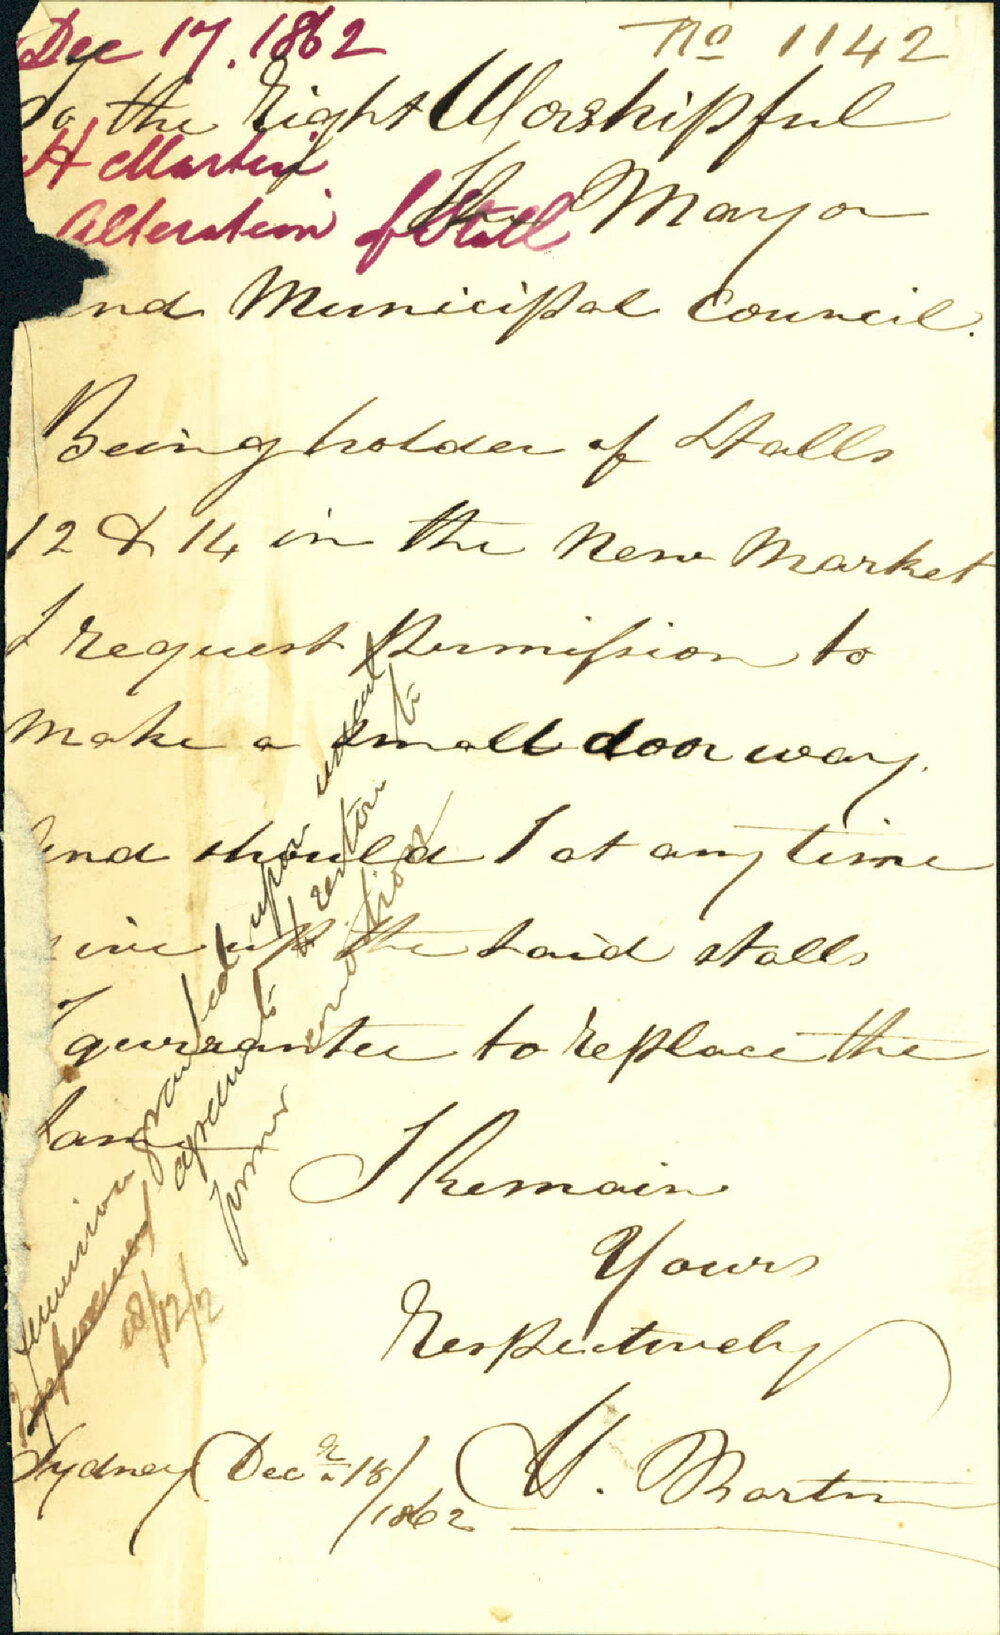 Dec 17. 1862
No 1142
To the Right Worshipful
H Martin
The Mayor
Alteration of Stall
and Municipal Council.
Being holder of Stalls
12 & 14 in the New Market
I request Permission to
Make a small door way.
And should I at any time
give up the said stalls
I gurrantee to replace the
same
I Remain
Yours
Respectively
H. Martin
Sydney Decr 16/
1862
Permission granted upon
agreement to restore to
former condition
18/12/2